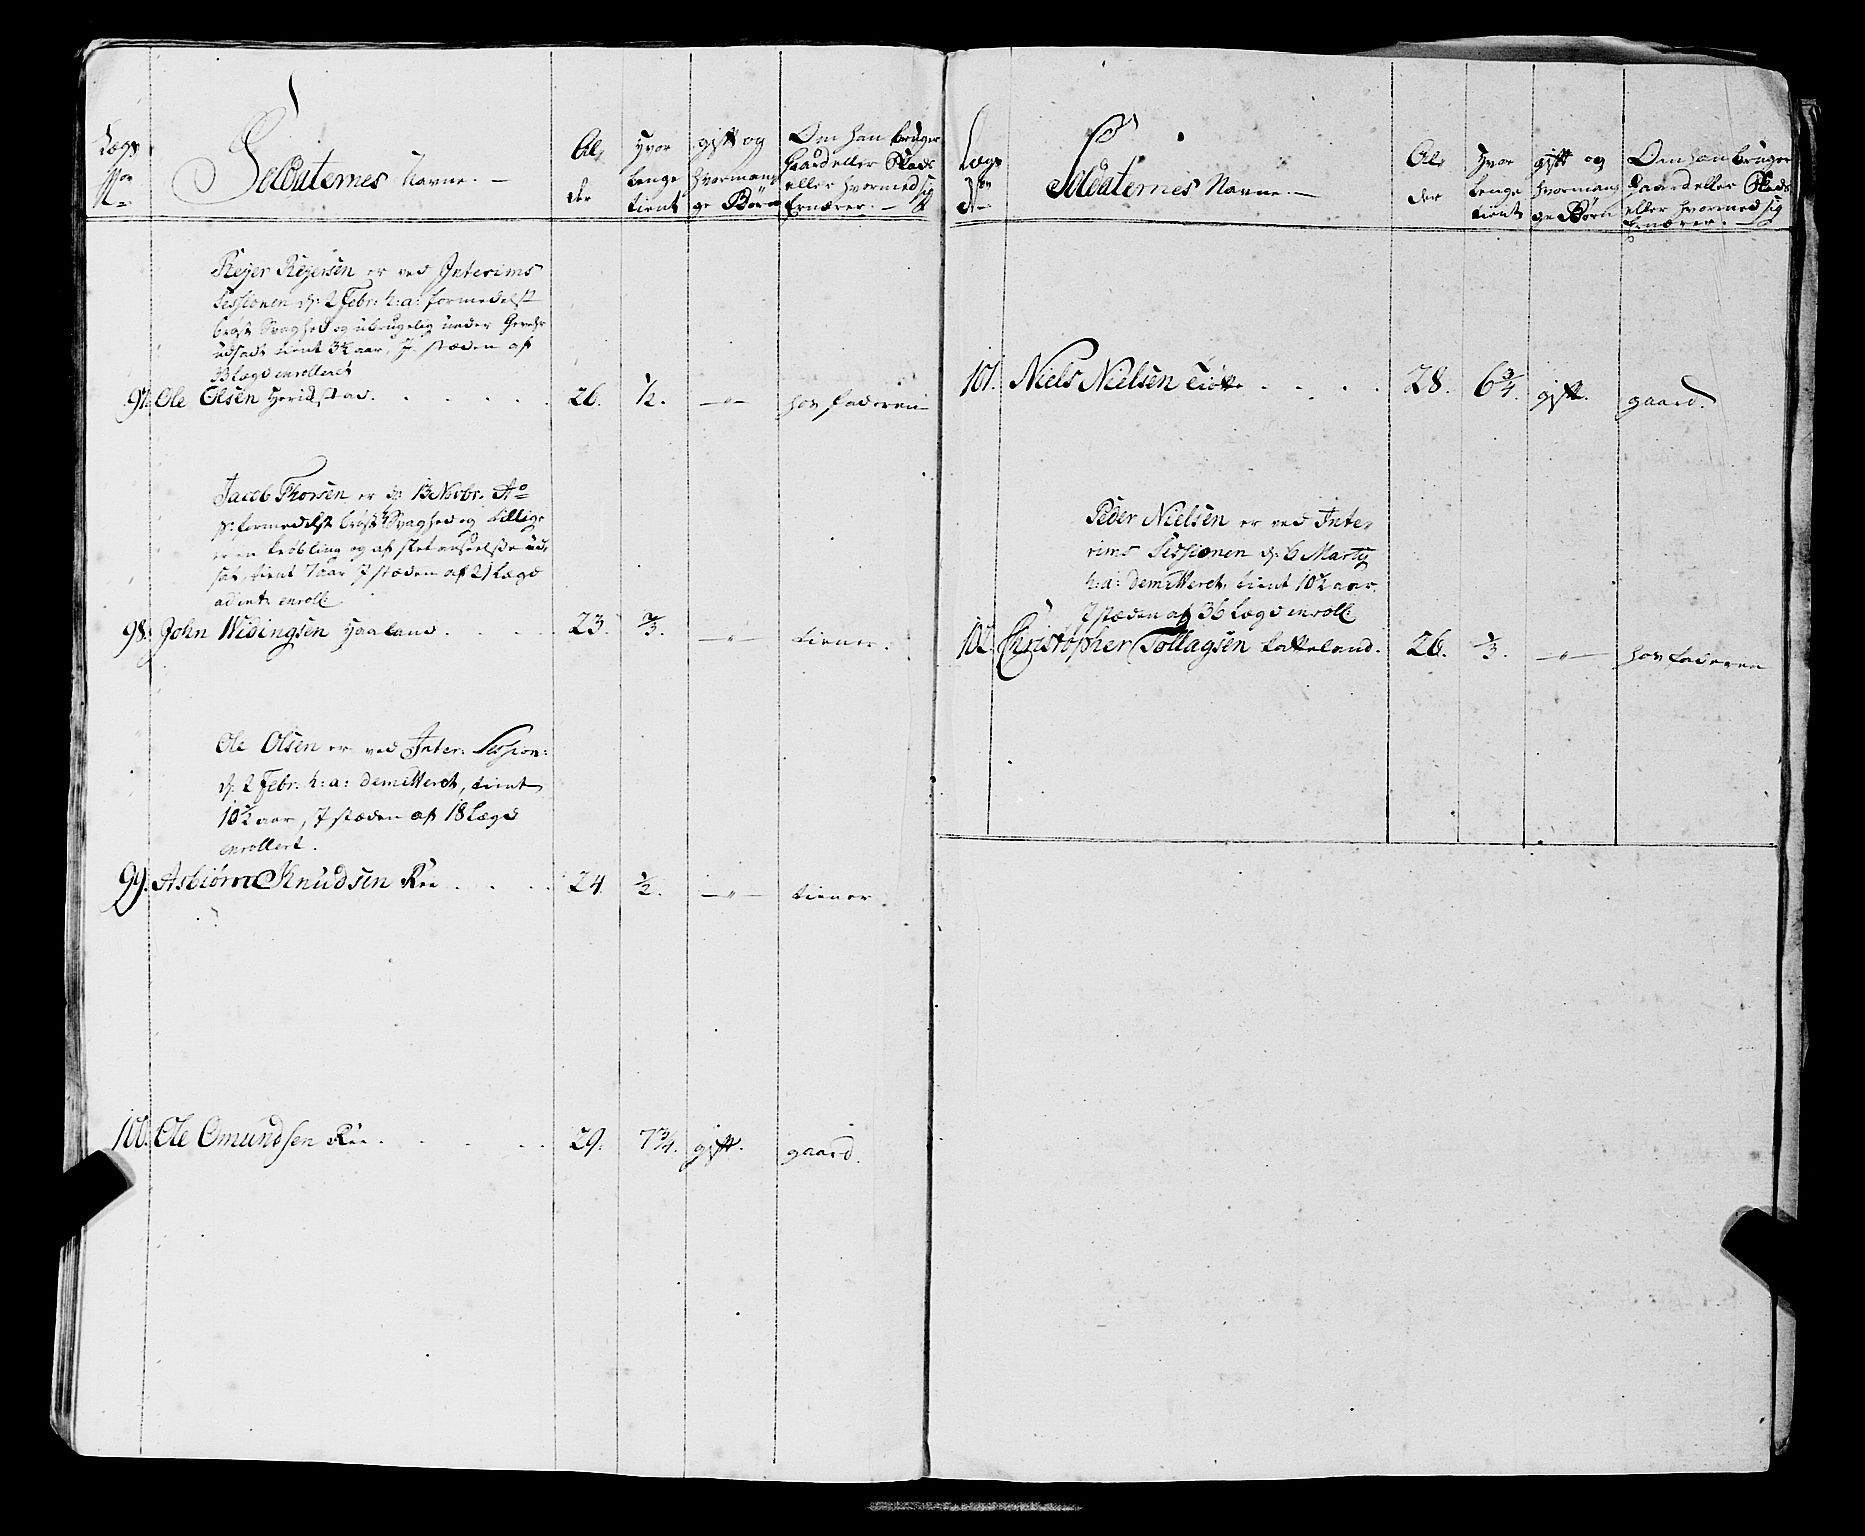 Lægs No
Soldaternes Navne. —
Alder
Hvor lenge tient
gift og hvormange Børn
Om han bruger
Gaard eller Plads
eller hvormed sig
Ernærer. —
Rejer Rejersen er ved Interims
Sessionen d: 2 Febr: h: a: formedelst
brøst Svaghed og ubrugelig under Gevehr
udsadt tient 3½ aar, I stæden af
33 Lægd enrolleret
97. Ole Olsen Heridstad. . . . . . 26. ½. —„— hos Faderen
Jacob Thorsen er d: 13 Novbr: Ao
p: formedelst brøst Svaghed og tillige
er en krøbling og af slet anseelse ud,
sat, tient 7 aar I stæden af 21 Lægd
ad int: enroll:
98. John Widingsen Haaland. . . . . 23. ⅔. —„— tiener.
Ole Olsen er ved Inter: Session:
d: 2 Febr: h: a: demitteret, tient
10½ aar, I stæden af 18 Lægd
enrollert.
99. Asbiørn Knudsen Ree . . . . 24. ½. —„— tiener.
100. Ole Omundsen Ree. . . . . 29. 7¾. gift. gaard.
Lægs No
Soldaternes Navne. —
Alder
Hvor lenge tient
gift og hvormange Børn
Om han bruger
Gaard eller Plads
eller hvormed sig
Ernærer. —
101. Niels Nielsen Tiøtte . . . . 28. 6¾. gift. gaard.
Peder Nielsen er ved Inte,
rims Sessionen d: 6 Marty
h: a: demitteret, tient 10½ aar.
I stæden af 36 Lægd enroll:
102. Christopher Tollagsen Latteland. 26. ⅓. —„— hos Faderen